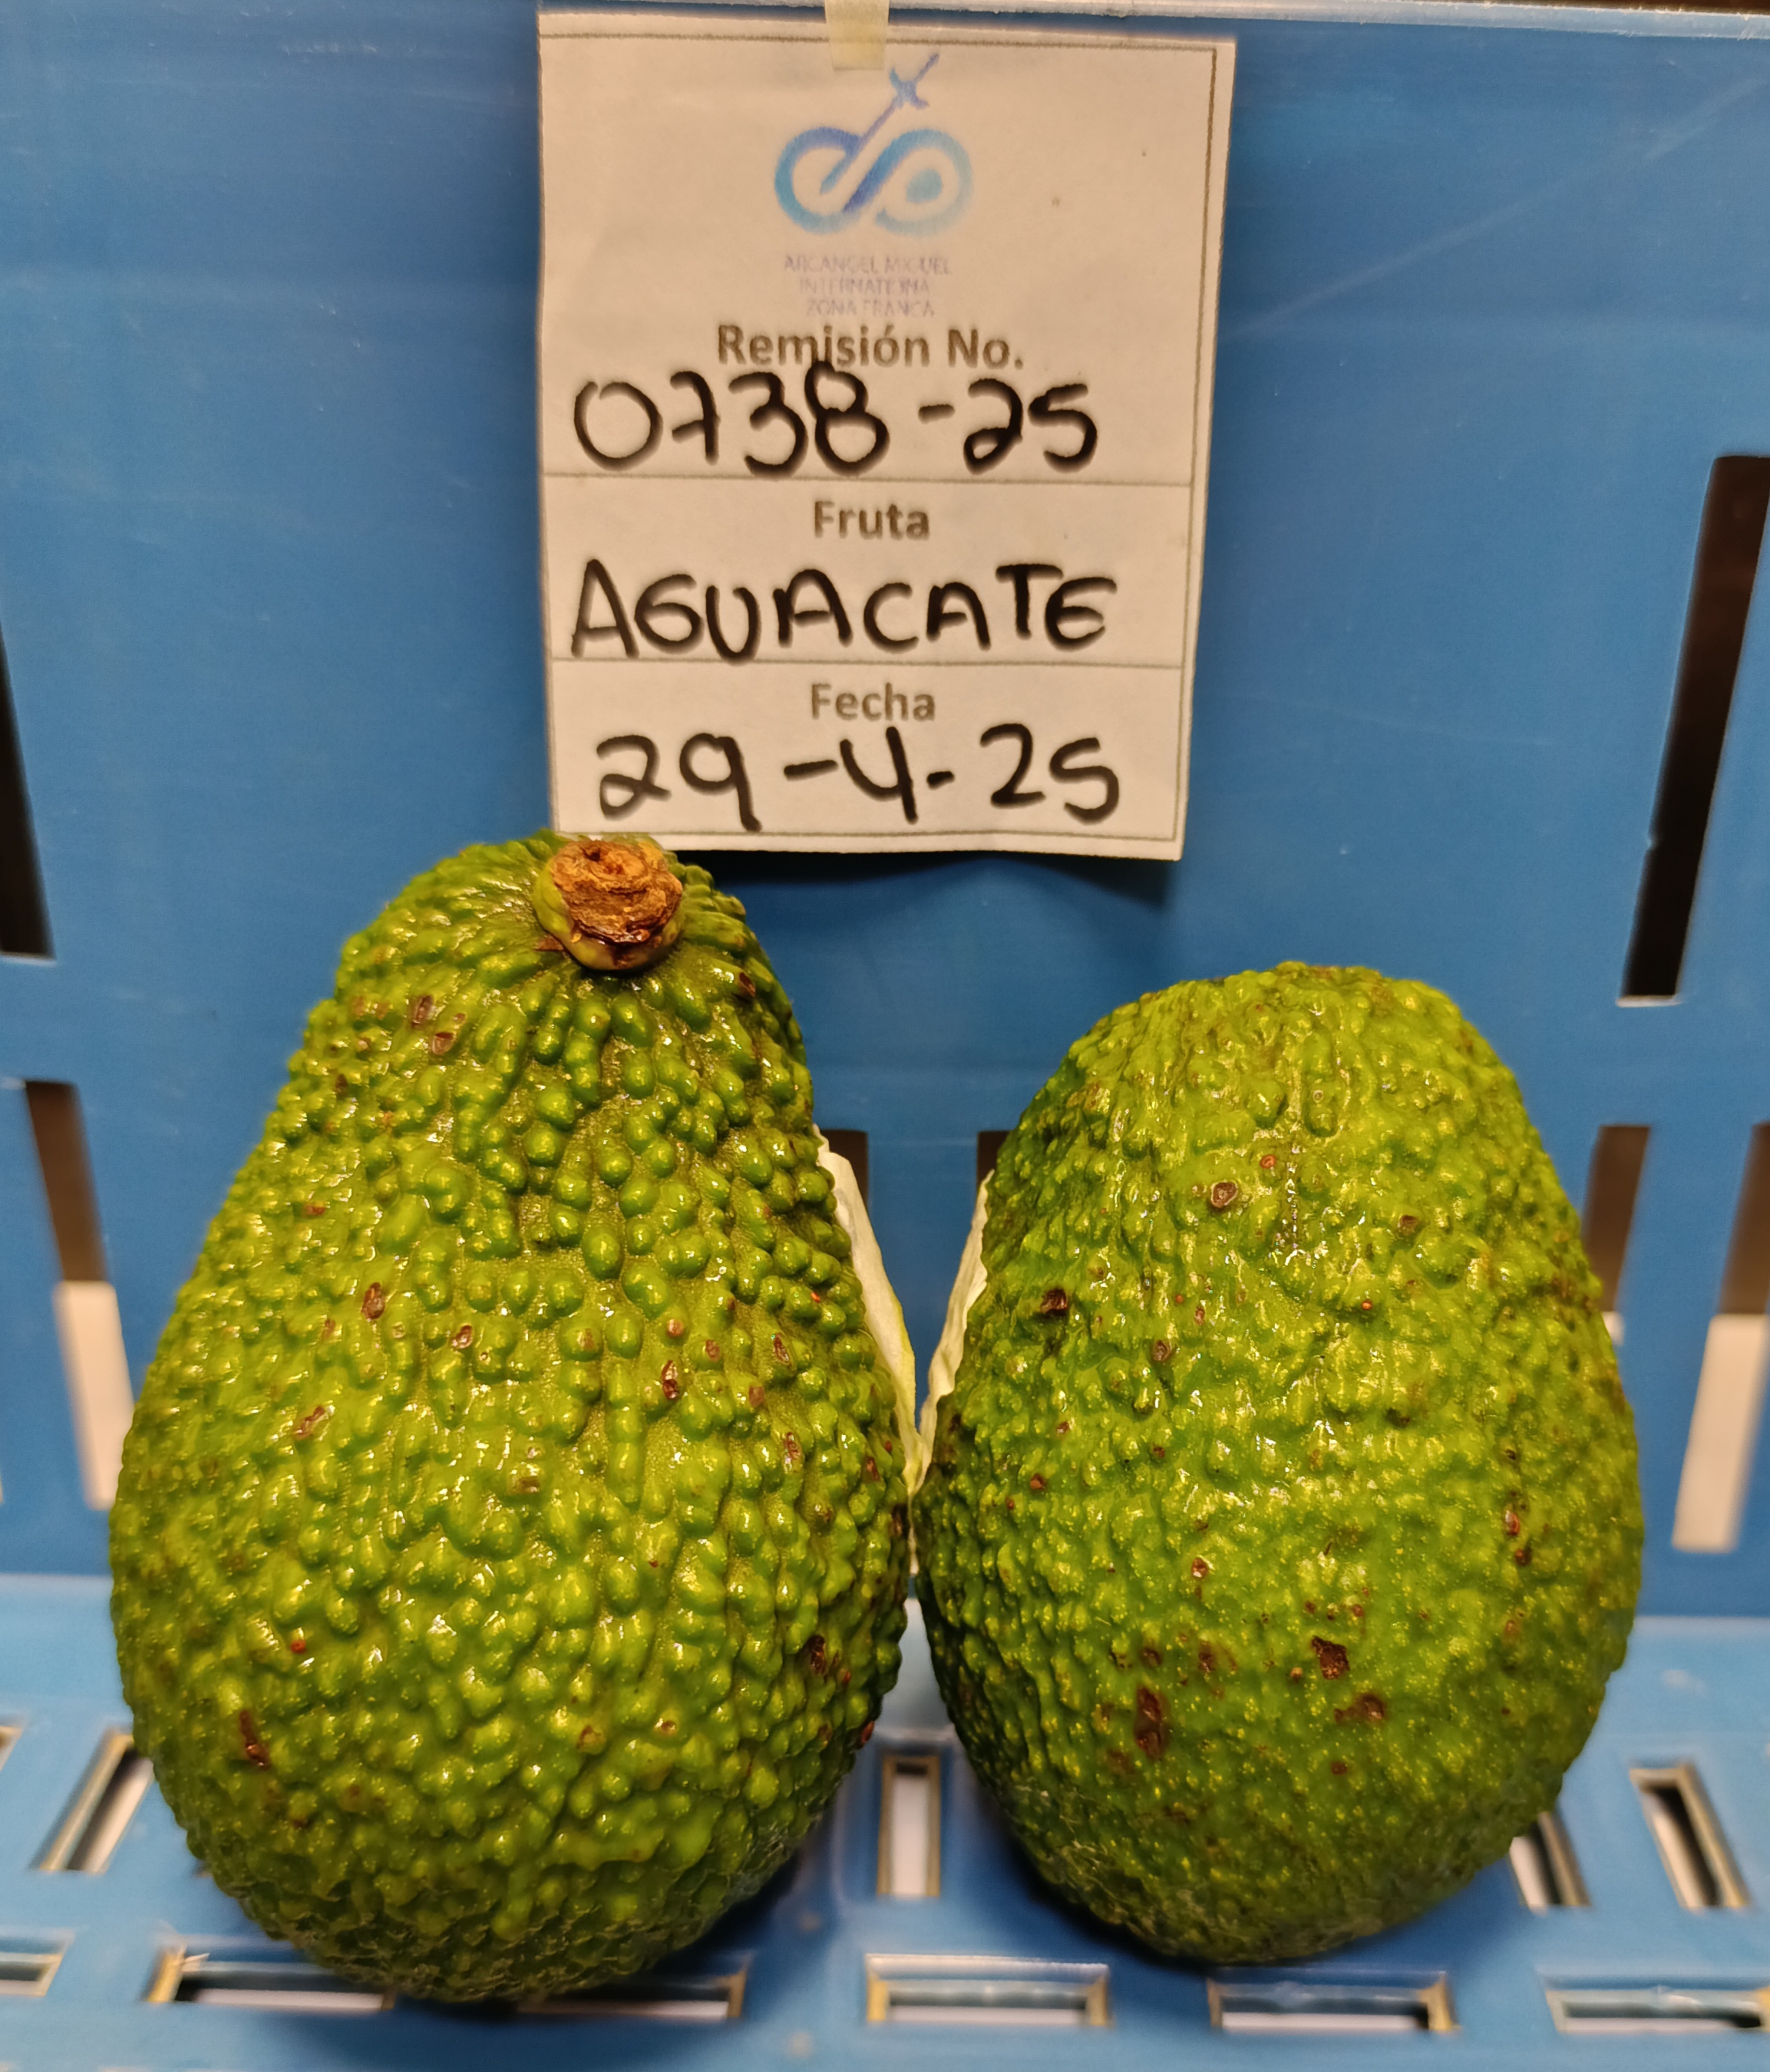 ARCANGEL MIGUEL
INTERNATIONAL
ZONA FRANCA
Remisión No.
0738-25
Fruta
AGUACATE
Fecha
29-4-25